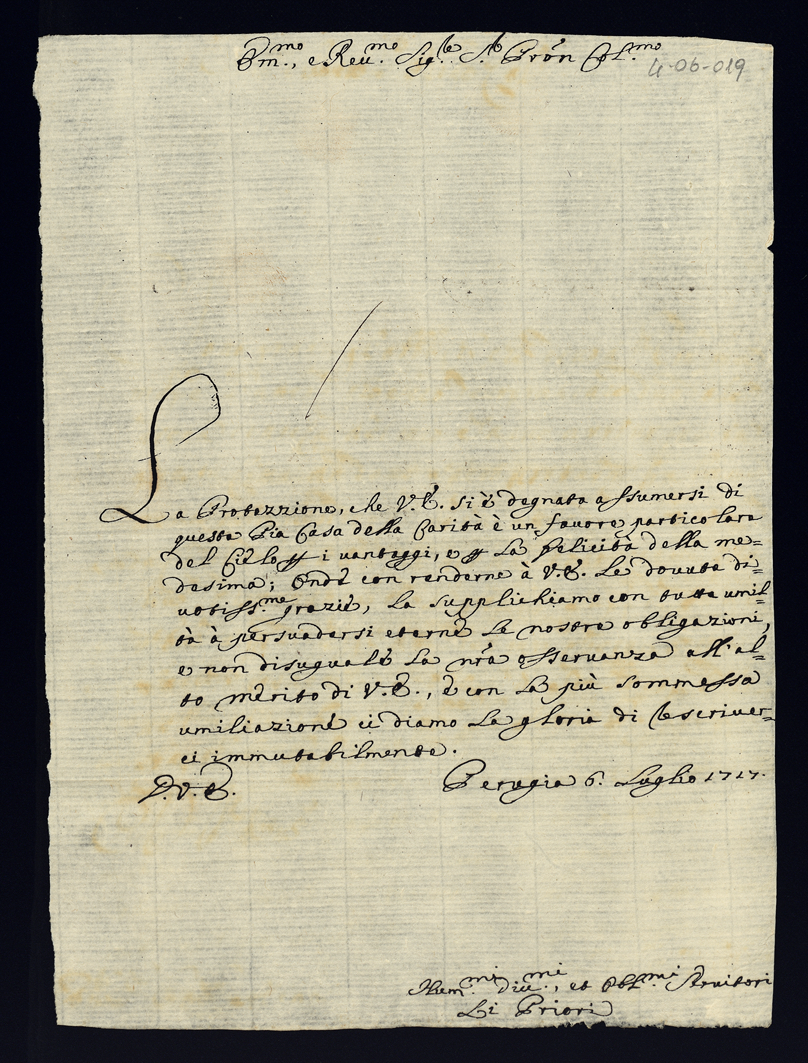 Em.mo, e Reu.mo Sig.re S.r Pron Col.mo
4-06-019
La Protezzione, che V.E. si è degnata assumersi di
questa Pia Casa della Carità è un fauore particolare
del Cielo p i vantaggi, e p la felicità della me=
desima; Onde con renderne à V.E. le douute di=
uotiss.me grazie, la supplichiamo con tutta umil=
tà à persuadersi eterne le nostre obligazioni,
e non disuguale la nrã osseruanza all'al=
to merito di V.E., e con la più sommessa
umiliazione ci diamo la gloria di rescriuer=
ci immutabilmente.
D.V.E.
Perugia 6. Luglio 1717.
Hum.mi Diu.mi, et Obl.mi Seruitori
Li Priori